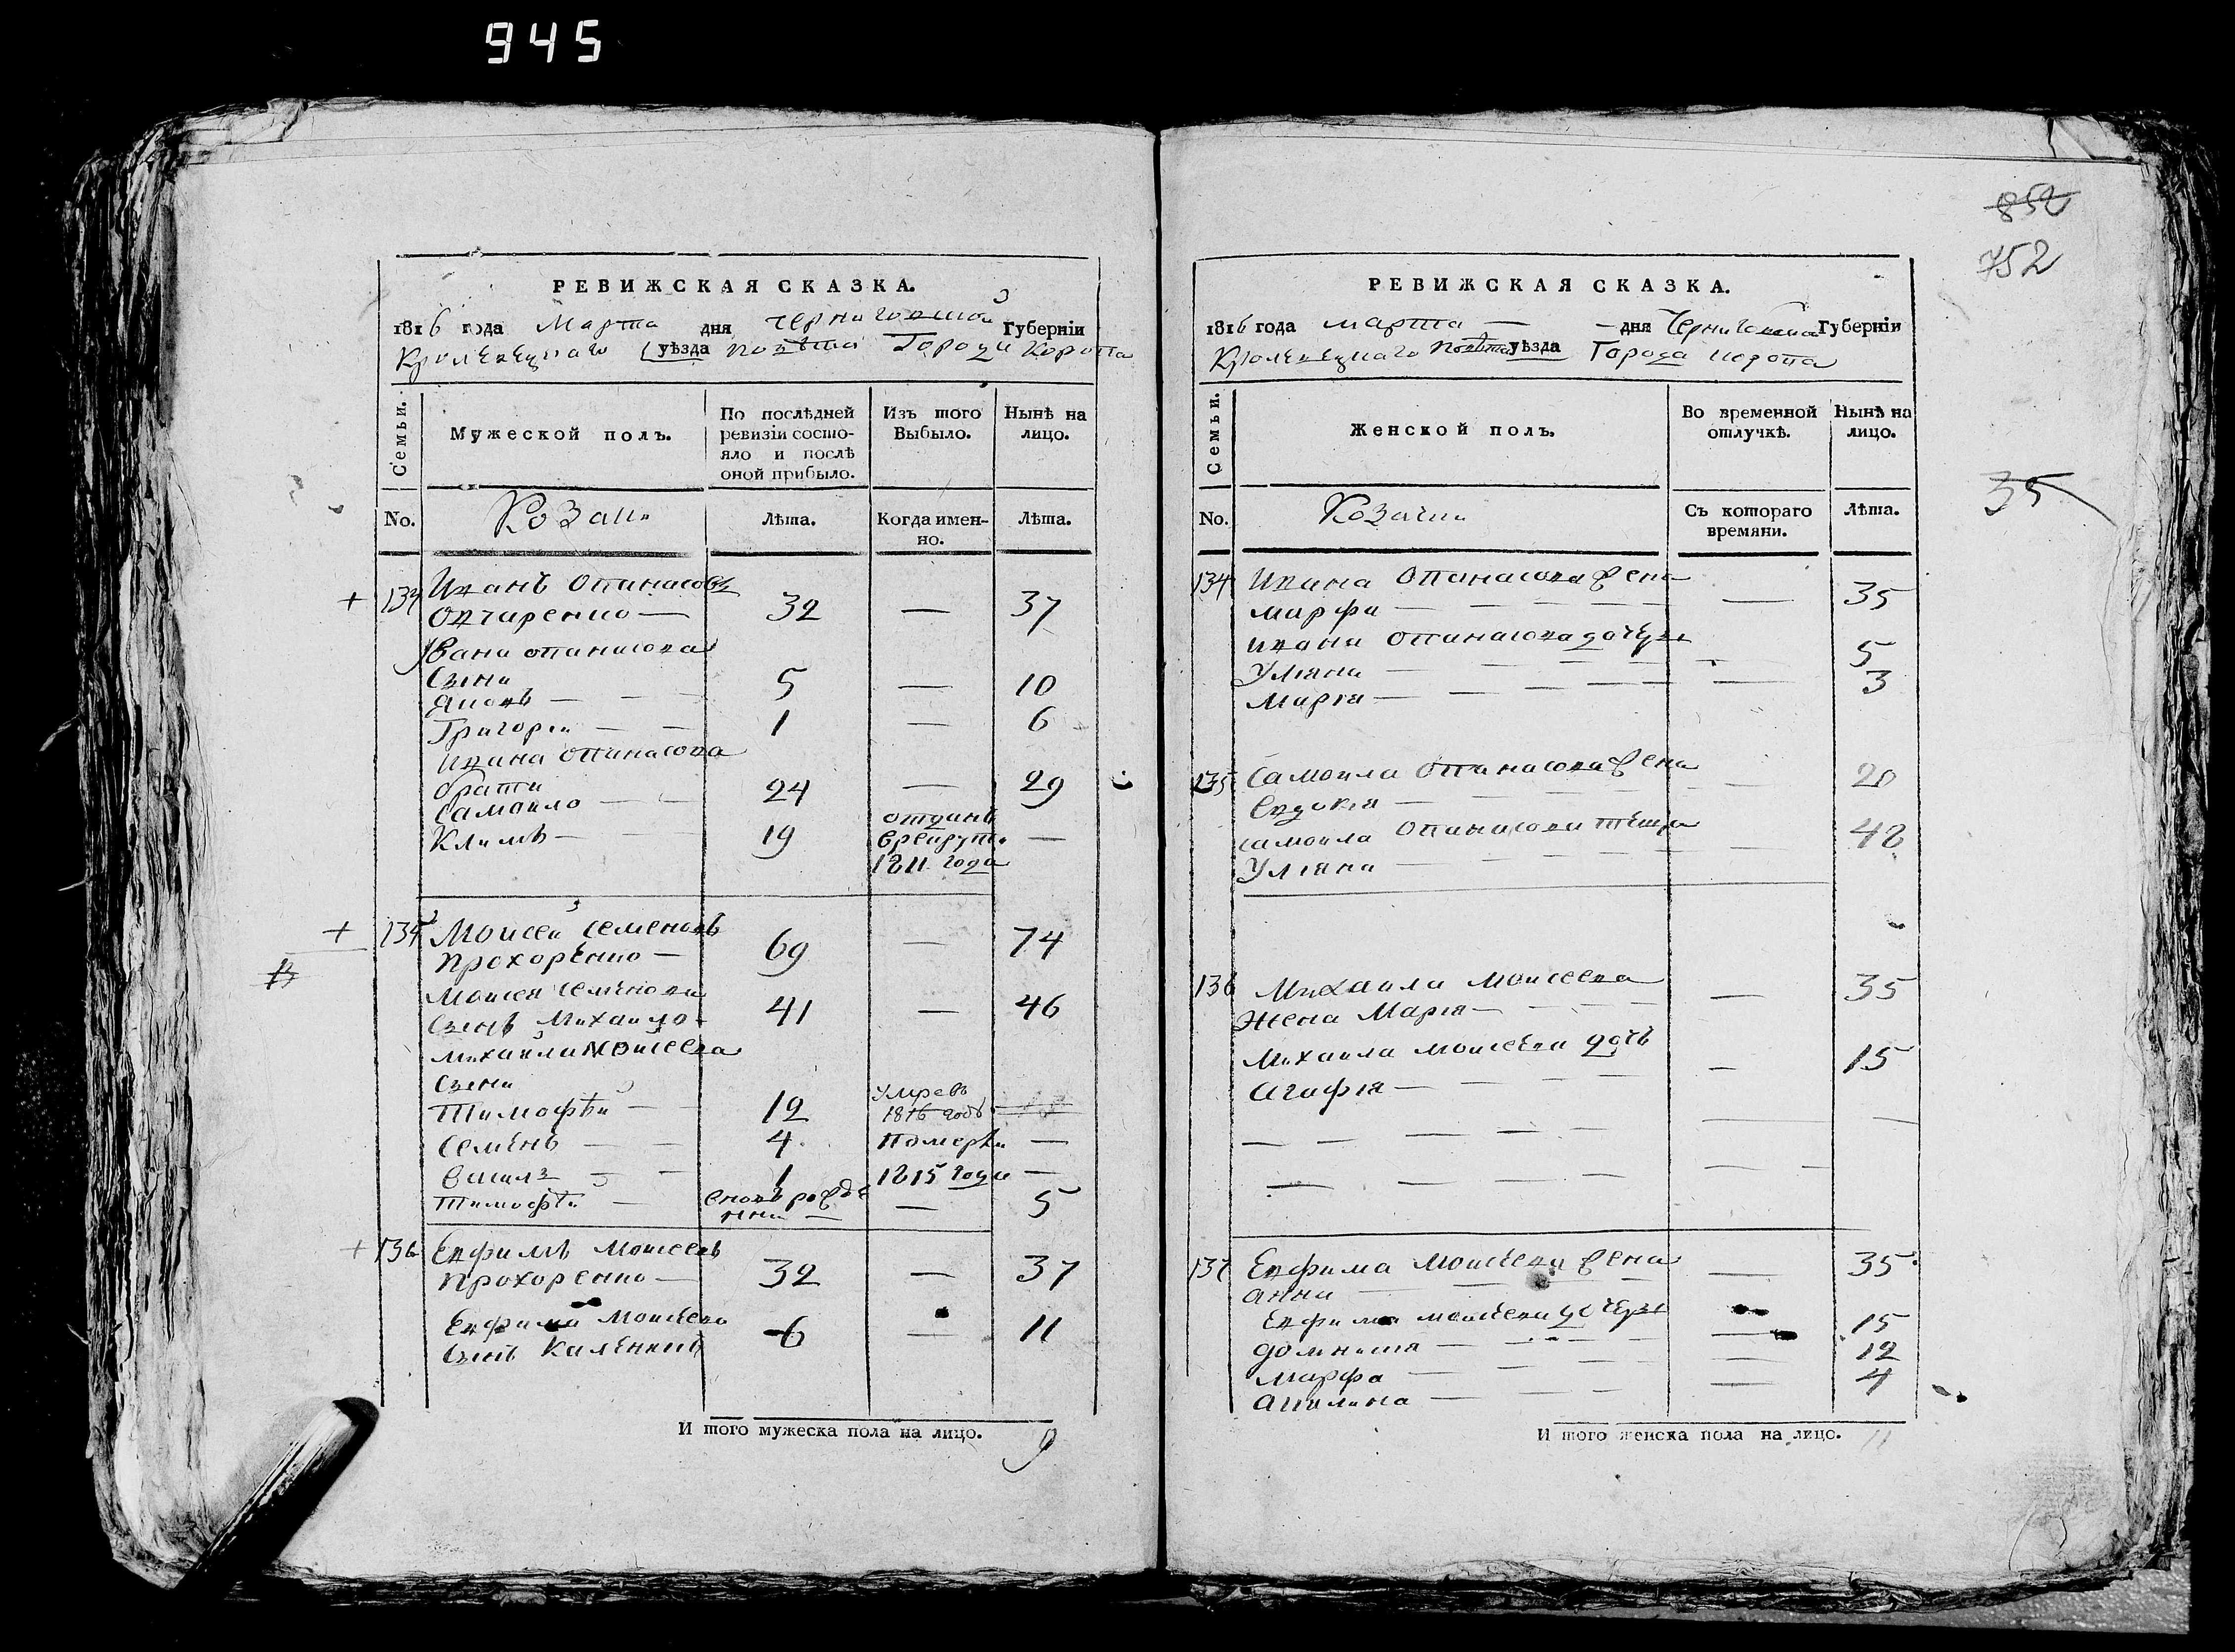 945
852
752
35
РЕВИЖСКАЯ СКАЗКА.
1816 года Марта дня Черниговской Губерніи
Кролевецкаго уѣзда повѣта Города Коропа
Семьи.
Мужеской полъ.
По послѣдней ревизіи состо-
яло и послѣ
оной прибыло.
Изъ того
Выбыло.
Нынѣ на
лицо.
No.
Козаки
Лѣта.
Когда имен-
но.
Лѣта.
+ 134 Иванъ Опанасовъ
Овчаренко — 32 — 37
Ивана опанасова
Сыни
Яковъ — 5 — 10
Григореи — 1 — 6
Ивана опанасова
брати
Самоило — 24 — 29
Климъ — 19 отданъ
врекруты —
1811 года
+ 135 Моисей Семеновъ
Прохоренко — 69 — 74
Моисея Семенова
Сынъ Михаило 41 — 46
Михаила Моисеева
Сыни
Тимофѣй — 12 Умрѣ въ
1816 годѣ
Семенъ — 4 Померъ —
Василь — 1 1815 года —
Тимофѣй — вновь рожде
нни — 5
+ 136 Евфимъ Моисеевъ
Прохоренко — 32 — 37
Евфима Моисеева
Сынъ Каленикъ 6 — 11
И того мужеска пола на лицо. 9
РЕВИЖСКАЯ СКАЗКА.
1816 года марта — дня Черниговской Губерніи
Кролевецкаго Повѣта уѣзда Города Коропа
Семьи.
Женской полъ.
Во временной
отлучкѣ.
Нынѣ на
лицо.
No.
Козачки
Съ котораго
времяни.
Лѣта.
134 Ивана Опанасова жена
марфа — 35
Ивана Опанасова дочери
Уляна — 5
Марія — 3
135 Самоила Опанасова жена 20
Евдокія —
самоила Опанасова теща 48
Уляна —
136 Михаила Моисеева
Жена Марія — 35
Михаила моисеева дочь
Агафія — 15
137 Евфима Моисеева жена
анна — 35
Евфима моисеева дочери
домникія — 15
Марфа — 12
Акилина — 4
И того женска пола на лицо. 11